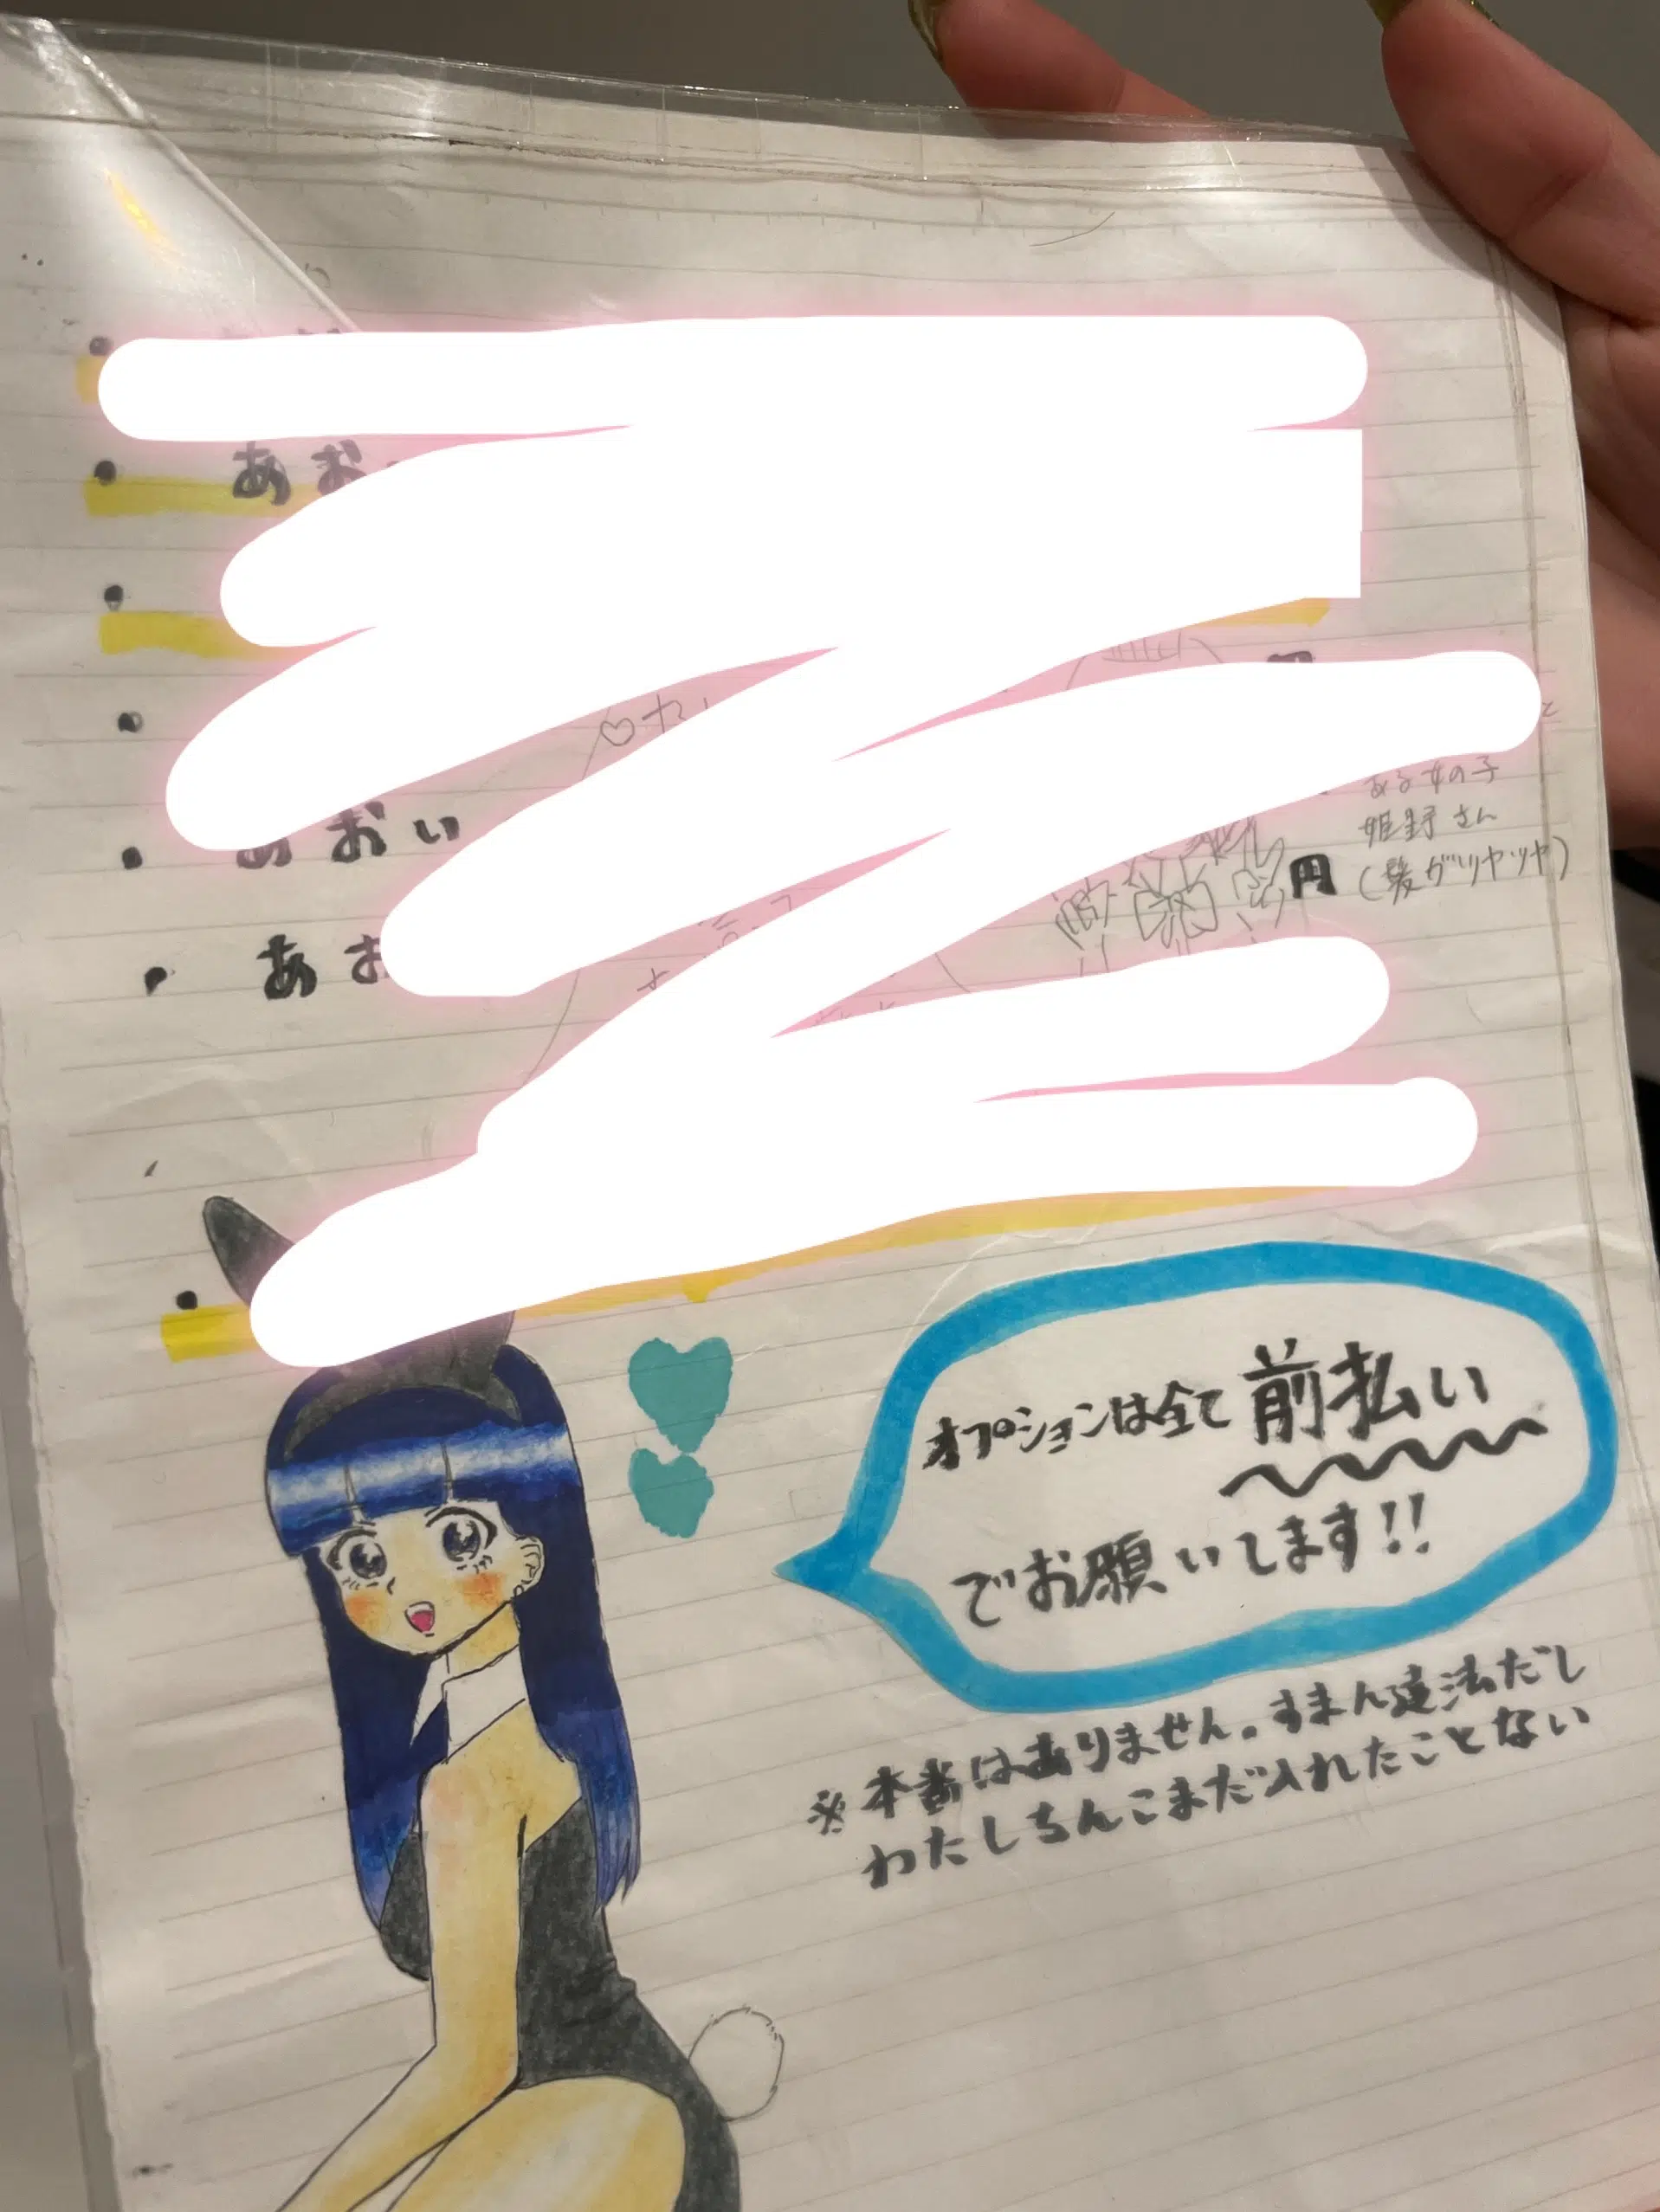 あお
♡
あおい
円
ある女の子
姫野さん
(髪がツヤツヤ)
あお
オプションは全て前払い
でお願いします!!
※本番はありません。すまん違法だし
わたしちんこまだ入れたことない